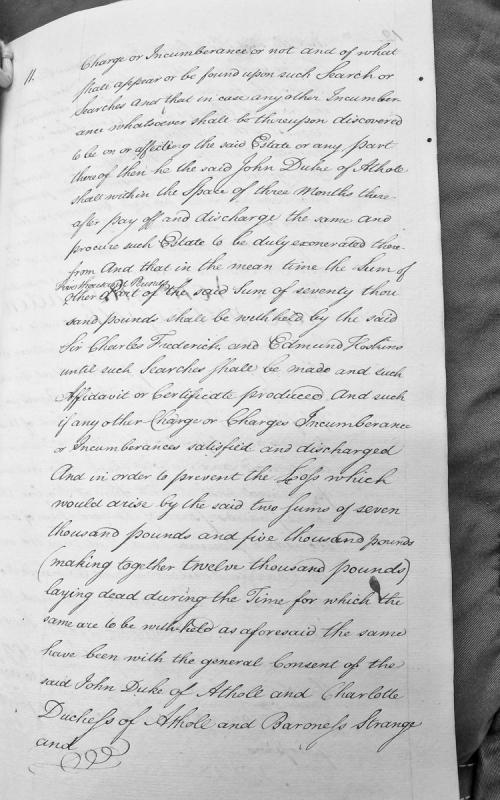 11.
Charge or Incumberance or not and of what
shall appear or be found upon such Search or
Searches And that in case any other Incumber-
ance whatsoever shall be thereupon discovered
to be on or affecting the said Estate or any part
thereof then he the said John Duke of Atholl
shall within the Space of three Months there-
after pay off and discharge the same and
procure such Estate to be duly exonerated there-
from And that in the mean time the Sum of
five thousand Pounds
other Part of the said Sum of seventy thou
sand pounds shall be withheld by the said
Sir Charles Frederick, and Edmund Hoskins
until such Searches shall be made and such
Affidavit or Certificate produced And such
if any other Charge or Charges Incumberance
or Incumberances satisfied and discharged
And in order to prevent the Loss which
would arise by the said two Sums of seven
thousand pounds and five thousand pounds
(making together twelve thousand pounds)
laying dead during the Time for which the
same are to be with-held as aforesaid the same
have been with the general Consent of the
said John Duke of Atholl and Charlotte
Duchess of Atholl and Baroness Strange
and